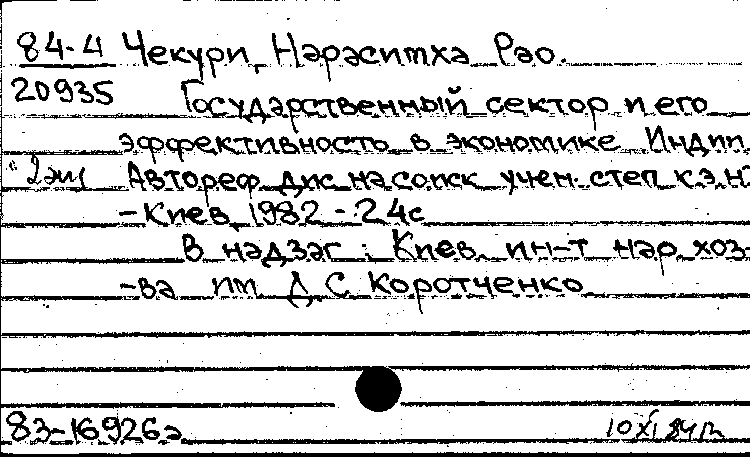 84-4 Чекури, Нарасимха Рао.
20935 Государственный сектор и его
эффективность в экономике Индии.
2 экз Автореф. дис. на соиск. учен. степ. к.э.н.
-Киев, 1982 - 24с
В надзаг.: Киев. ин-т нар. хоз-
-ва им. Д. С. Коротченко.
83-16926а 10 XI 84